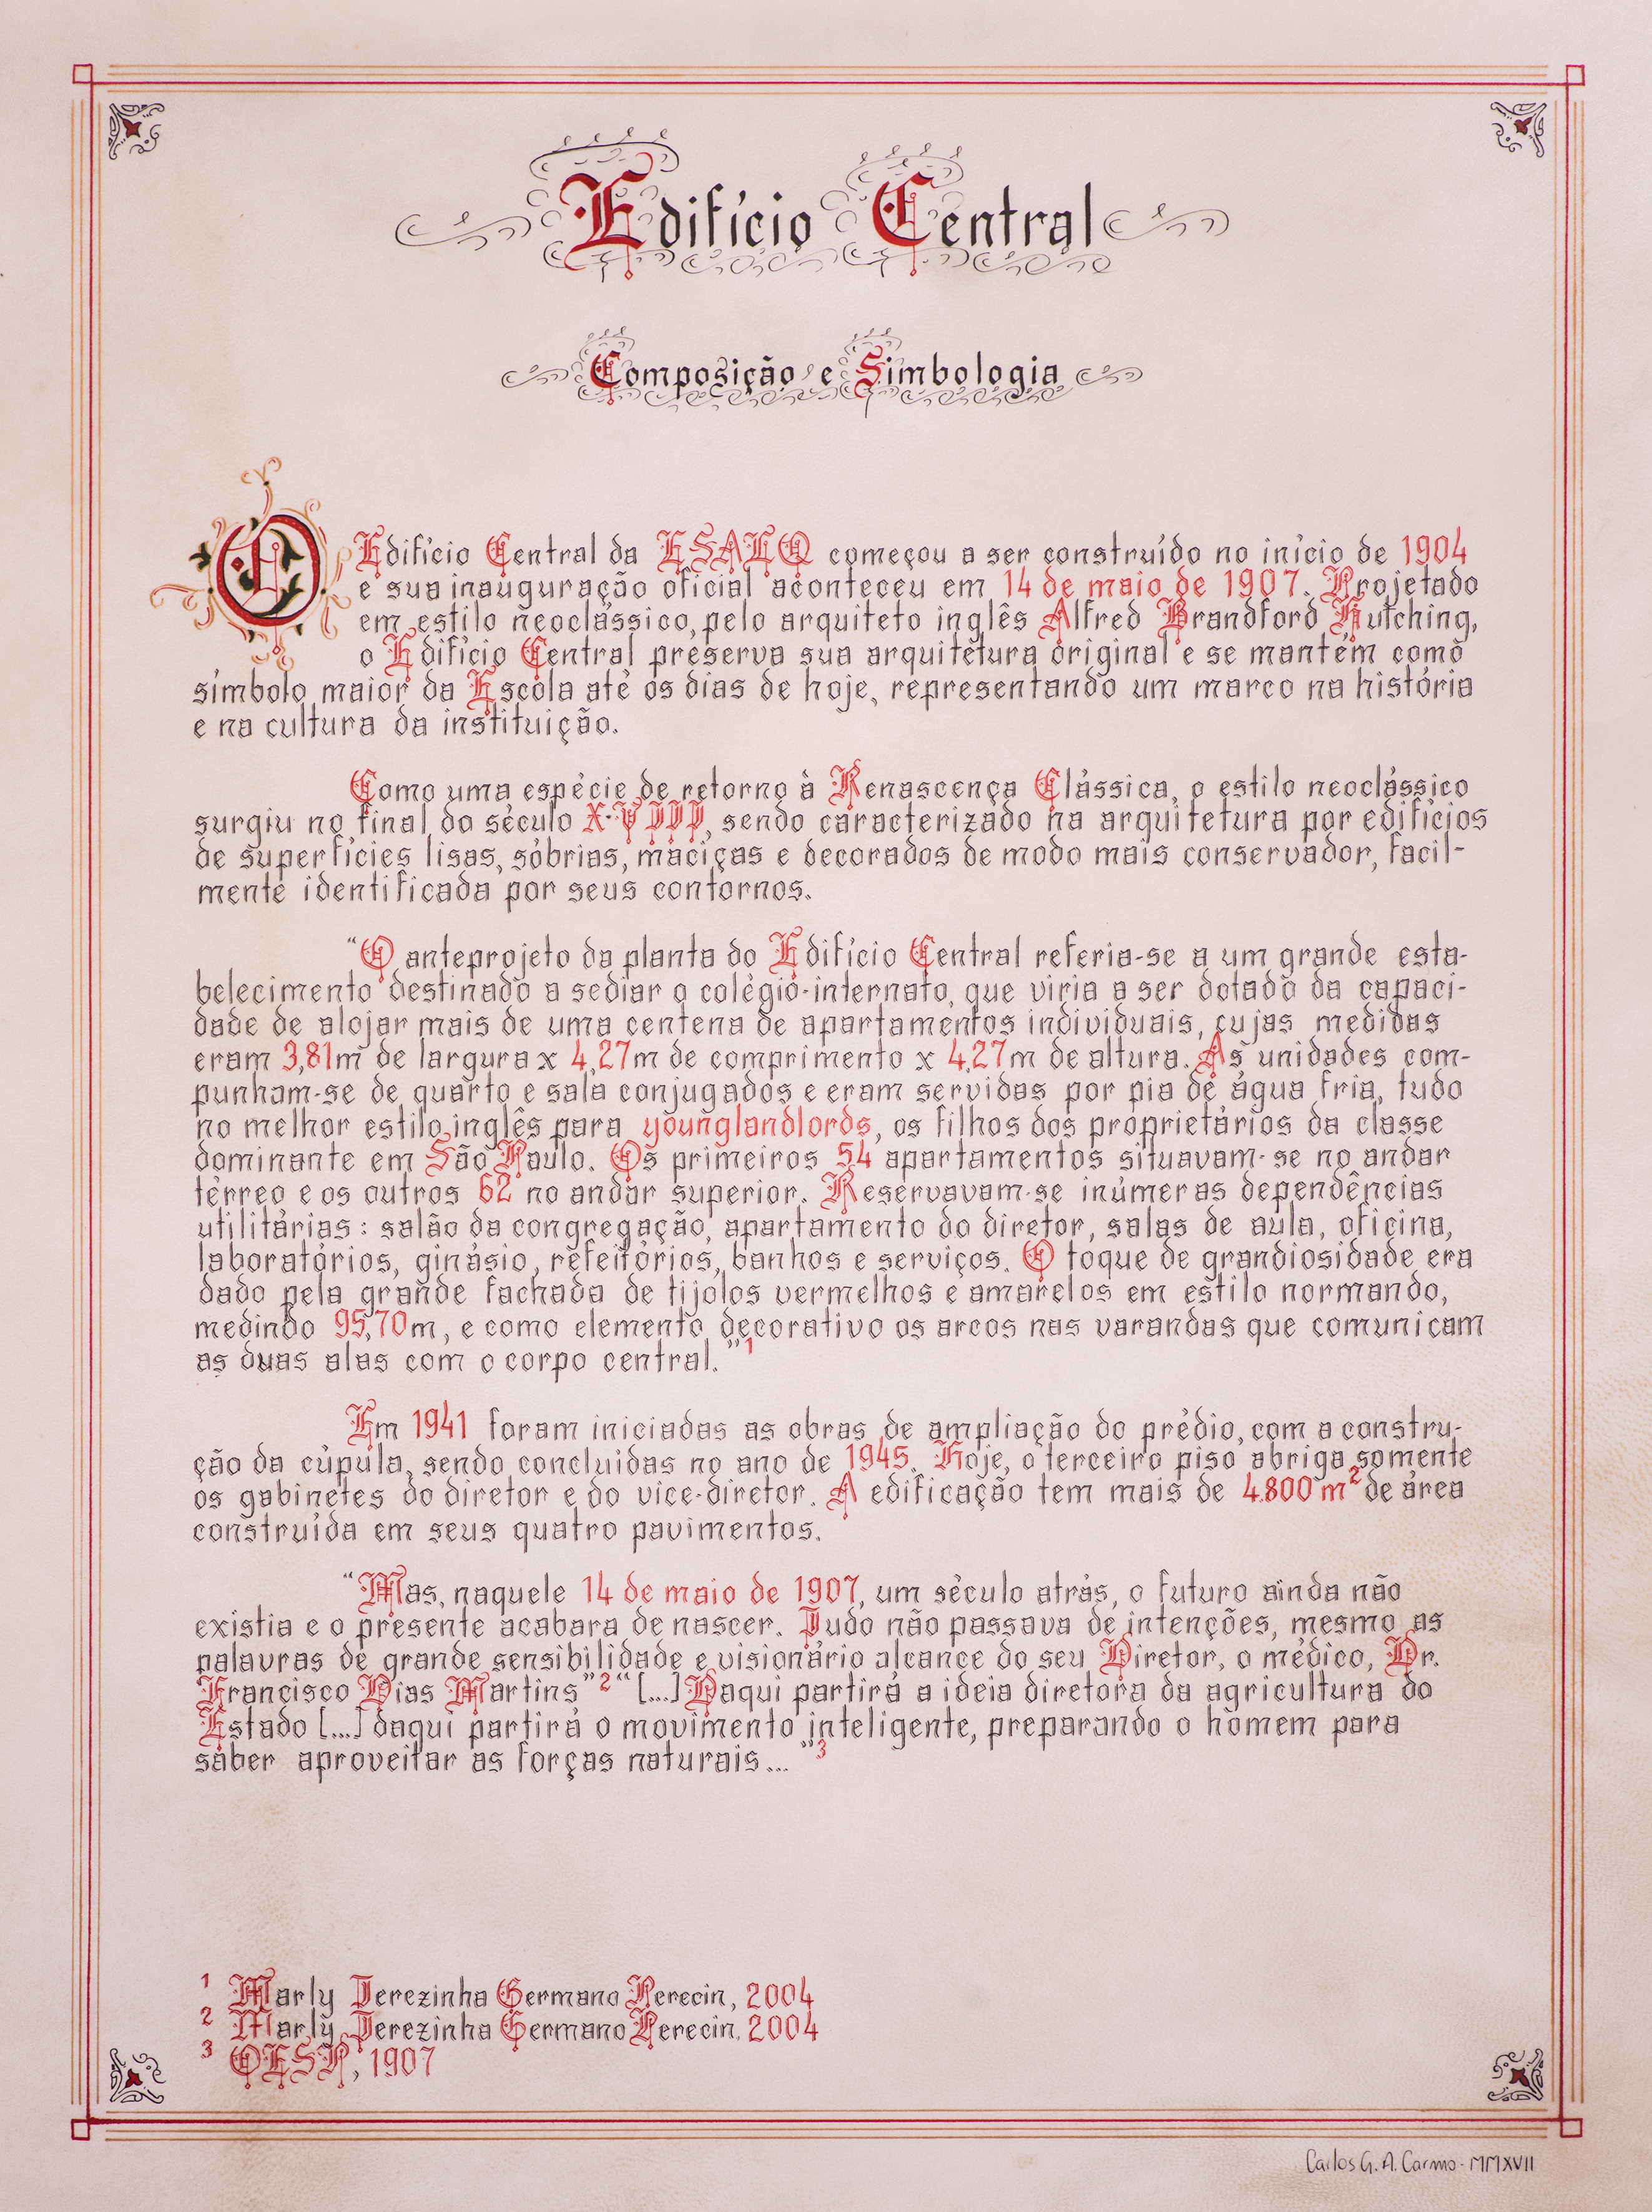 Edifício Central
Composição e Simbologia
O Edifício Central da ESALQ começou a ser construído no início de 1904
e sua inauguração oficial aconteceu em 14 de maio de 1907. Projetado
em estilo neoclássico, pelo arquiteto inglês Alfred Brandford Hutching,
o Edifício Central preserva sua arquitetura original e se mantém como
símbolo maior da Escola até os dias de hoje, representando um marco na história
e na cultura da instituição.
Como uma espécie de retorno à Renascença Clássica, o estilo neoclássico
surgiu no final do século X·VIII, sendo caracterizado na arquitetura por edifícios
de superfícies lisas, sóbrias, maciças e decorados de modo mais conservador, facil-
mente identificada por seus contornos.
“O anteprojeto da planta do Edifício Central referia-se a um grande esta-
belecimento destinado a sediar o colégio-internato, que viria a ser dotado da capaci-
dade de alojar mais de uma centena de apartamentos individuais, cujas medidas
eram 3,81m de largura x 4,27m de comprimento x 4,27m de altura. As unidades com-
punham-se de quarto e sala conjugados e eram servidas por pia de água fria, tudo
no melhor estilo inglês para younglandlords, os filhos dos proprietários da classe
dominante em São Paulo. Os primeiros 54 apartamentos situavam-se no andar
térreo e os outros 62 no andar superior. Reservavam-se inúmeras dependências
utilitárias: salão da congregação, apartamento do diretor, salas de aula, oficina,
laboratórios, ginásio, refeitórios, banhos e serviços. O toque de grandiosidade era
dado pela grande fachada de tijolos vermelhos e amarelos em estilo normando,
medindo 95,70m, e como elemento decorativo os arcos nas varandas que comunicam
as duas alas com o corpo central.”1
Em 1941 foram iniciadas as obras de ampliação do prédio, com a constru-
ção da cúpula, sendo concluídas no ano de 1945. Hoje, o terceiro piso abriga somente
os gabinetes do diretor e do vice-diretor. A edificação tem mais de 4.800 m² de área
construída em seus quatro pavimentos.
“Mas, naquele 14 de maio de 1907, um século atrás, o futuro ainda não
existia e o presente acabara de nascer. Tudo não passava de intenções, mesmo as
palavras de grande sensibilidade e visionário alcance do seu Diretor, o médico, Dr.
Francisco Dias Martins”2 “[...] Daqui partirá a ideia diretora da agricultura do
Estado [...] daqui partirá o movimento inteligente, preparando o homem para
saber aproveitar as forças naturais... ”3
1 Marly Terezinha Germano Perecin, 2004
2 Marly Terezinha Germano Perecin, 2004
3 OESP, 1907
Carlos G. A. Carmo - MMXVII